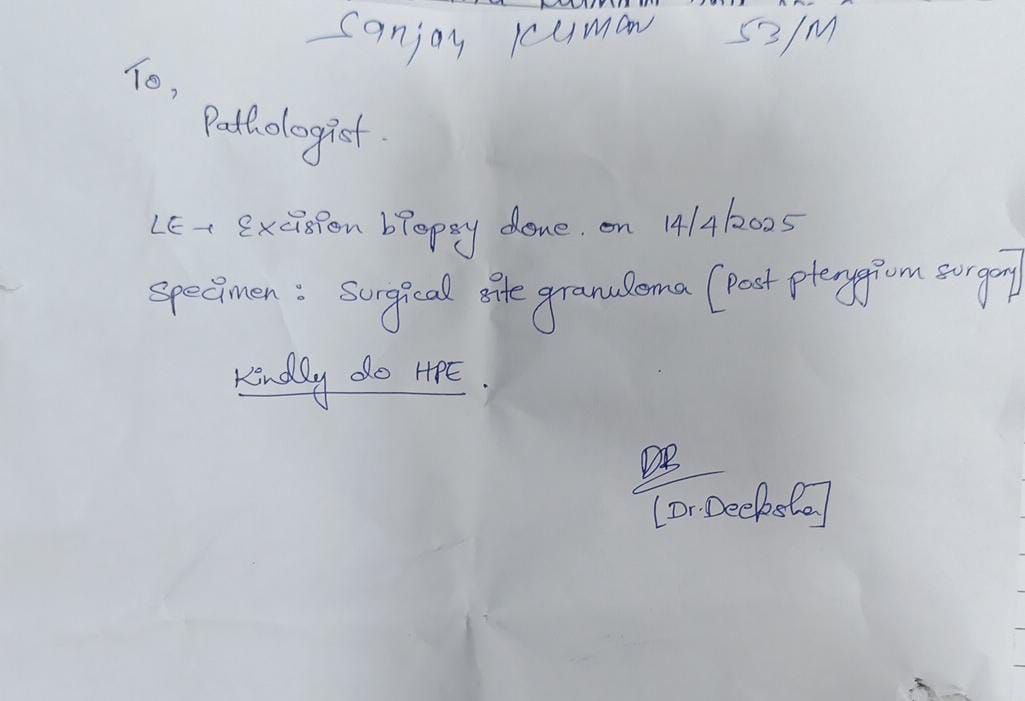 Sanjay Kumar 53/M
To,
Pathologist.
LE → Excision biopsy done. on 14/4/2025
Specimen : Surgical site granuloma [Post pterygium surgery]
Kindly do HPE.
[Dr. Deeksha]